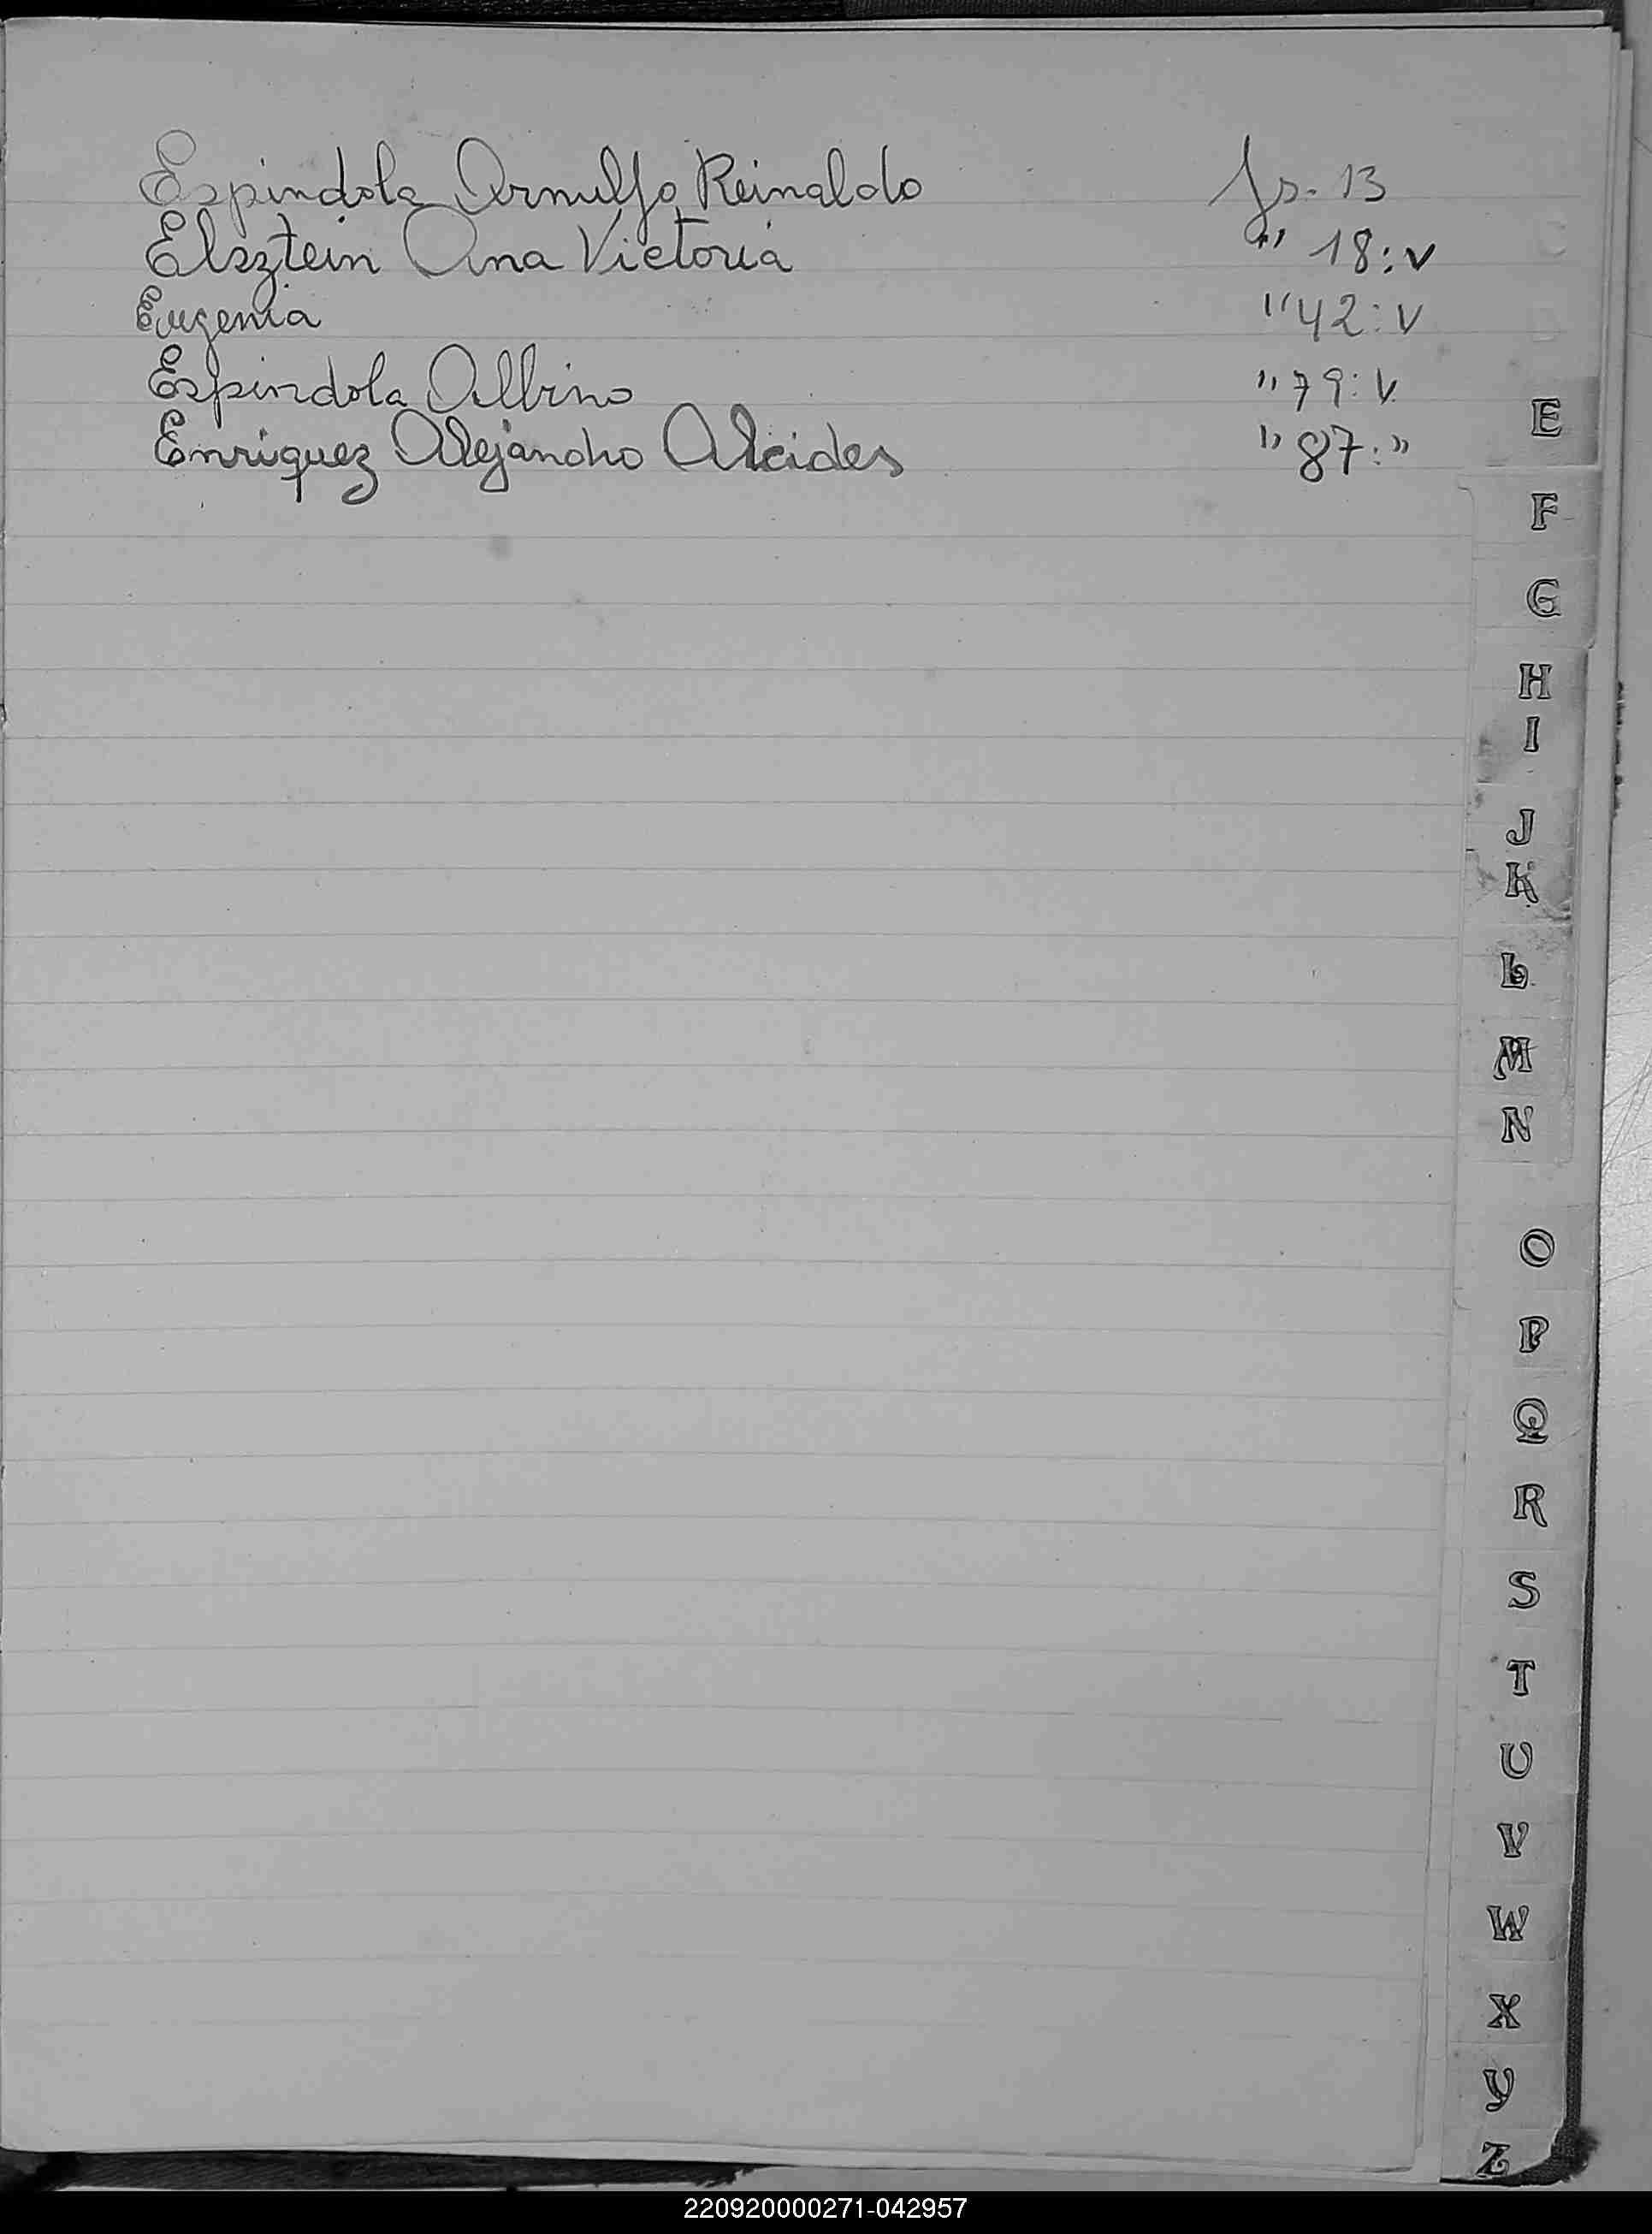 Espindola Arnulfo Reinaldo fs. 13
Elsztein Ana Victoria " 18:v
Eugenia " 42:v
Espindola Albino " 79:v
Enriquez Alejandro Alcides " 87:"
E
F
G
H
I
J
K
L
M
N
O
P
Q
R
S
T
U
V
W
X
Y
Z
220920000271-042957